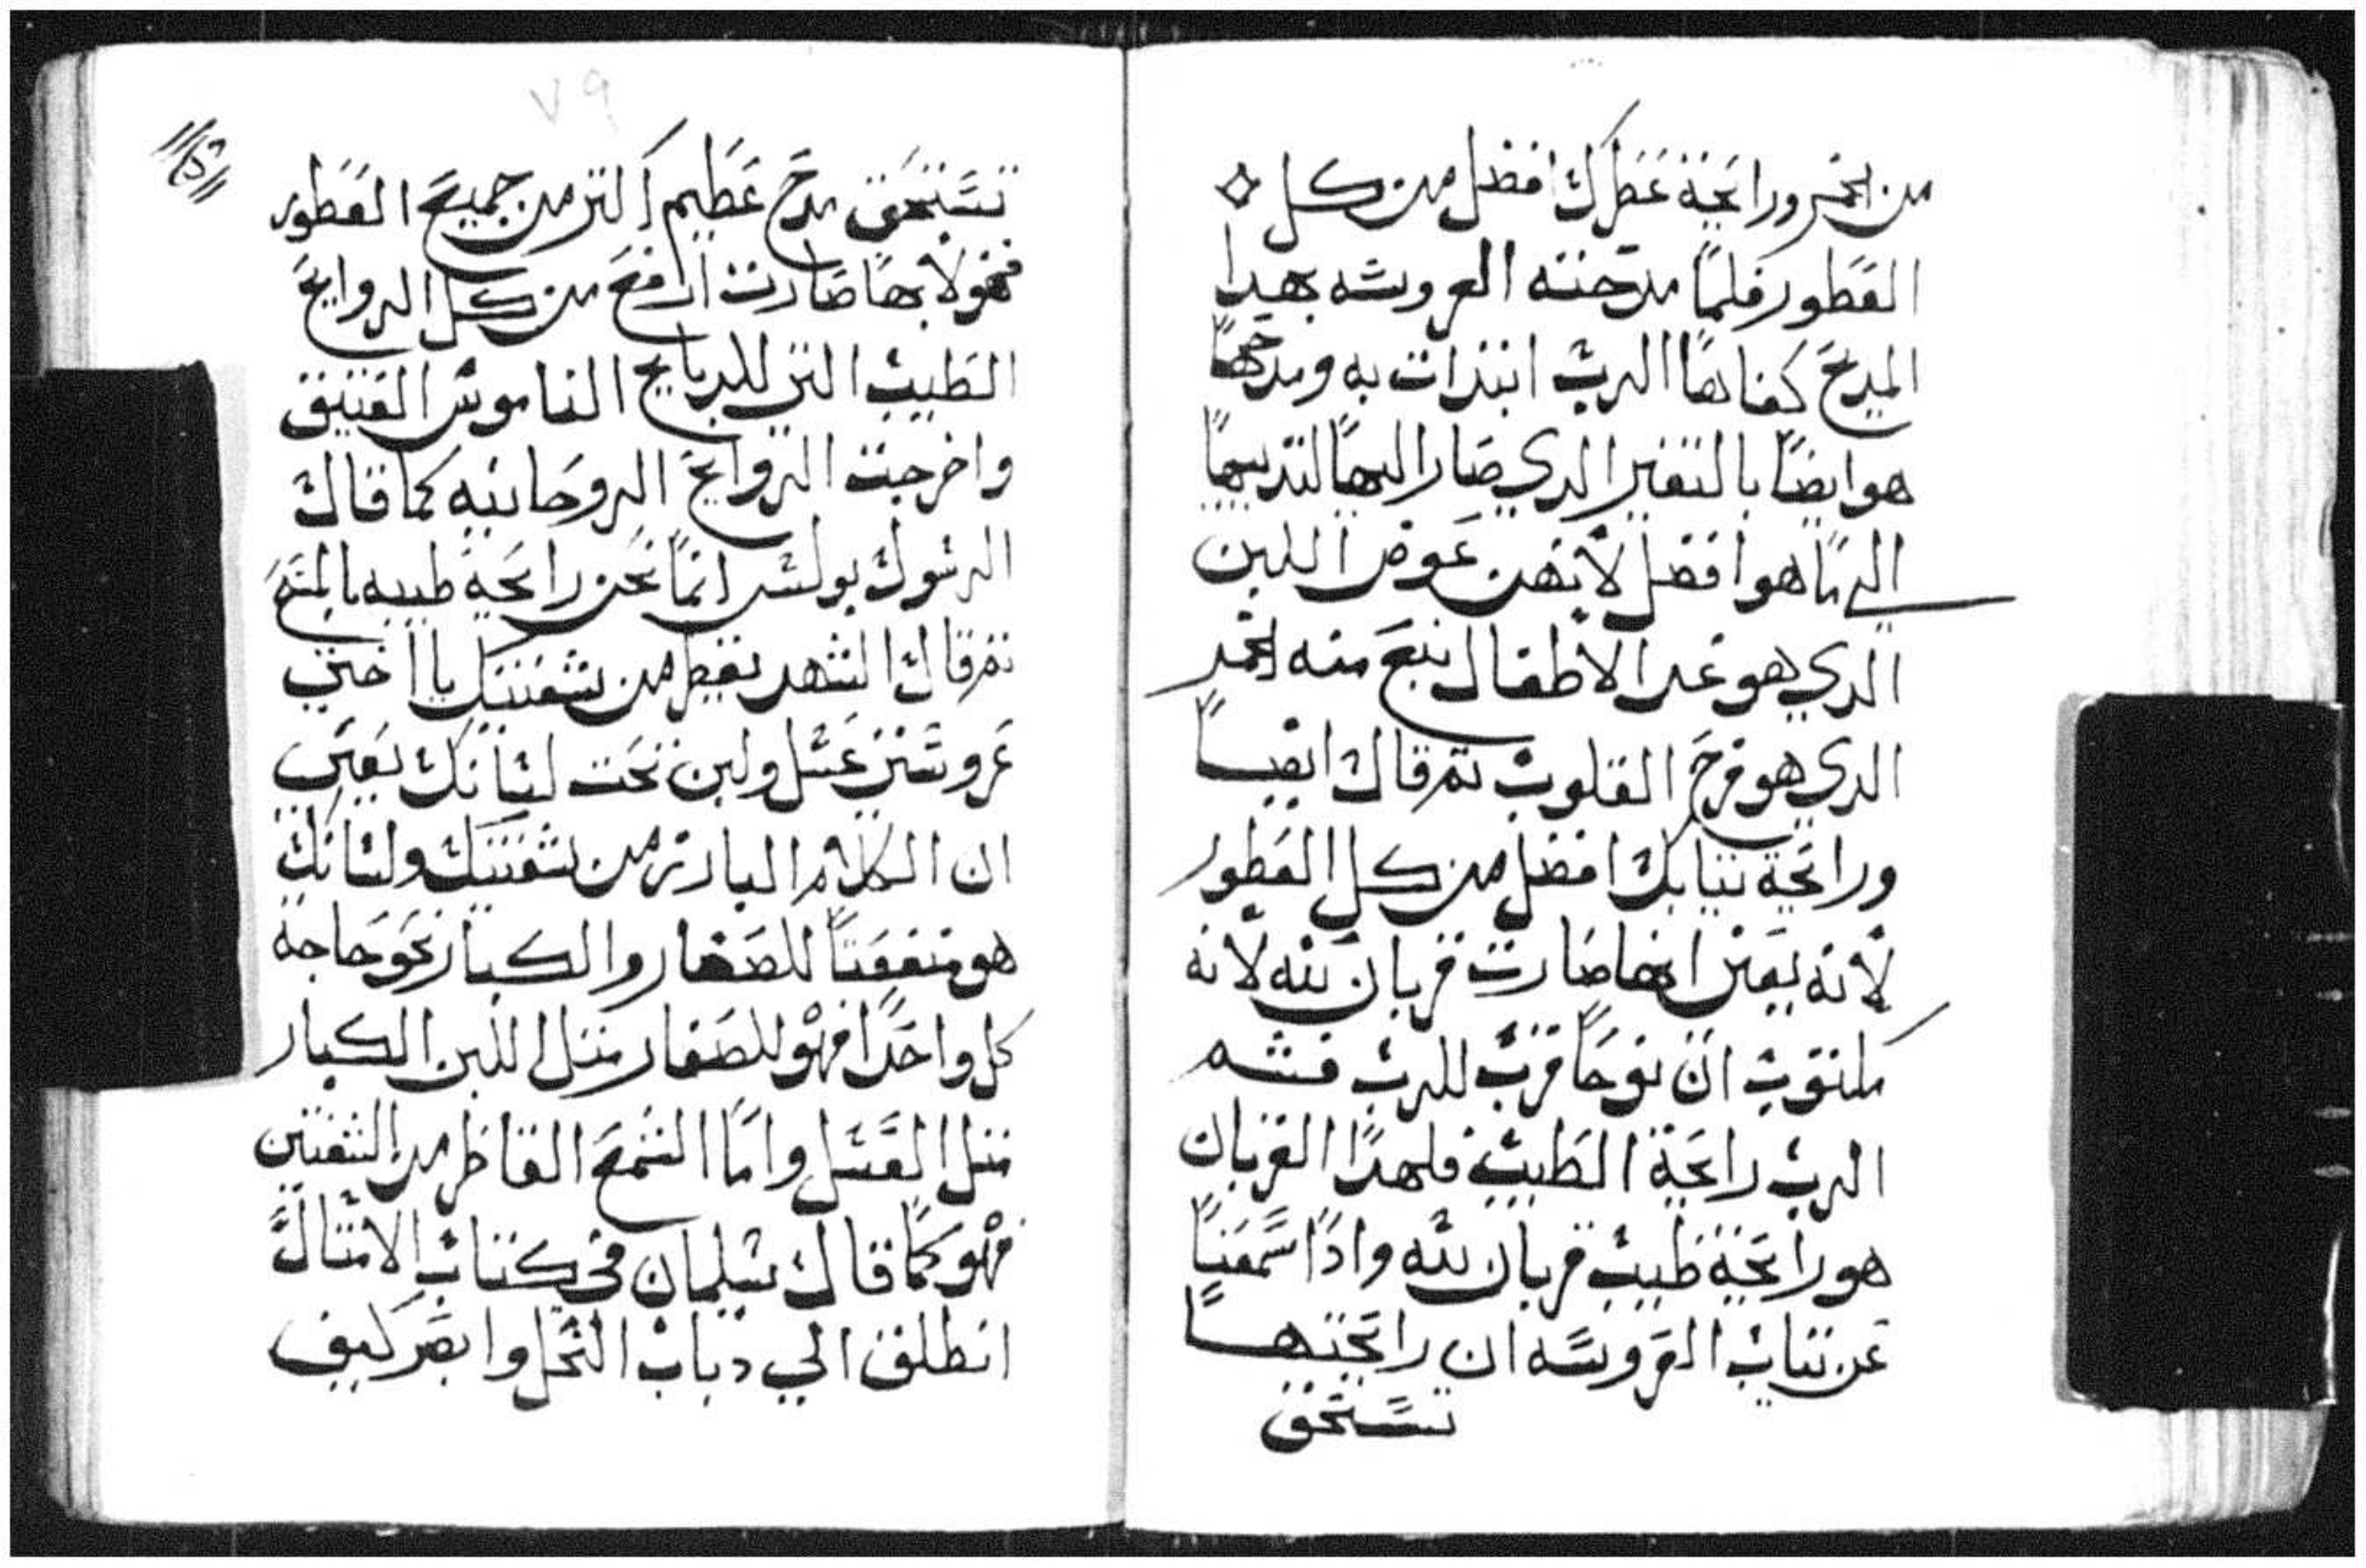 من الخمر ورائحة عطرك افضل من كل
العطور فلما مدحته العروسه بهدا
المديح كفاها الرب ابتدات به ومدحها
هو ايضا بالتغير الدي صار اليها لتدييها
الي ما هو افضل لأنهن عوض اللبن
الدي هو غدا الاطفال نبع منه الخمر
الدي هو فرح القلوب تم قال ايضا
ورائحة تيابك افضل من كل العطور
لأنه يعني انها صارت قربان لله لأنه
مكتوب ان نوحا قرب للرب فشم
الرب رائحة الطيب فلهدا القربان
هو رائحة طيب قربان لله وادا سمعنا
عن تياب العروسه ان رائحتها
تستحق
٧٩
تستحق مدح عظيم اكتر من جميع العطور
فهولا بها صارت ارفع من كل الروايح
الطيب التي للدبايح الناموس العتيق
واخرجت الروايح الروحانيه كما قال
الرسول بولس انما نحن رائحة طيبه بالمسيح
تم قال الشهد يقطر من شفتيك يا اختي
عروستي عسل ولبن تحت لسانك يعني
ان الكلام البارز من شفتيك ولسانك
هو منفعتا للصغار والكبار نحو حاجة
كل واحدا فهو للصغار متل اللبن الكبار
متل العسل واما الشمع القاطر من الشفتين
فهو كما قال سليمان في كتاب الامتال
انطلق الي دباب النحل وابصر كيف